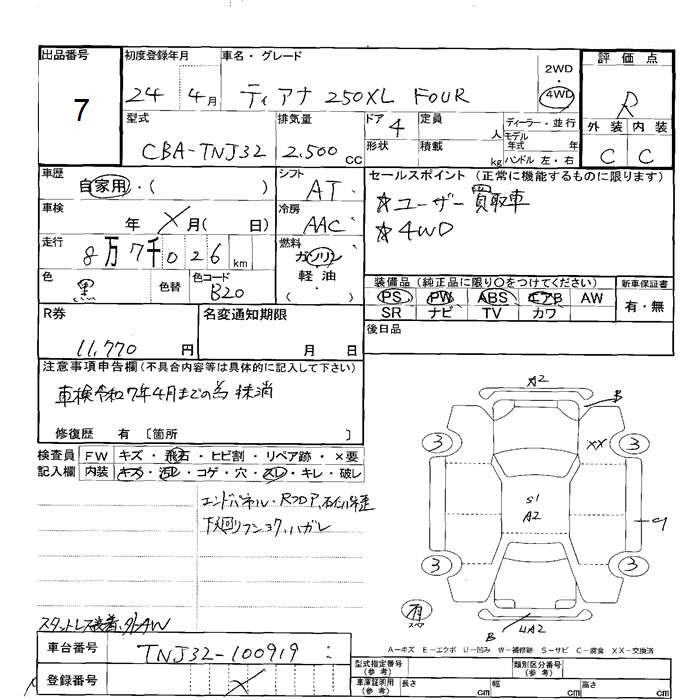 出品番号 7
初度登録年月 24 4月
車名・グレード ティアナ 250XL FOUR
2WD・4WD
評価点 R
外装 C 内装 C
型式 CBA-TNJ32
排気量 2.500 CC
ドア 4
形状
定員 人
積載 kg
ディーラー・並行
モデル年式 年
ハンドル 左・右
車歴 自家用・( )
シフト AT
車検 年 X月( 日)
冷房 AAC
走行 8万7千026 km
燃料 ガソリン 軽油・( )
色 黒 色替 色コード B20
セールスポイント(正常に機能するものに限ります)
☆ユーザー買取車
☆4WD
装備品(純正品に限り○をつけてください)
PS PW ABS エアB AW
SR ナビ TV カワ
新車保証書 有・無
後日品
R券 11,770 円
名変通知期限 月 日
注意事項申告欄(不具合内容等は具体的に記入して下さい)
車検令和7年4月までの為 抹消
修復歴 有 〔箇所 〕
検査員記入欄
FW キズ・飛石・ヒビ割・リペア跡・×要
内装 キズ・汚レ・コゲ・穴・スレ・キレ・破レ
エンドパネル・Rフロア
下廻リフショク、ハガレ
スタットレス装着、外AW
A2
B
3
3
XX
S1
A2
3
3
有 スペア
B
UA2
A-キズ E-エクボ U-凹み W-補修跡 S-サビ C-腐食 XX-交換済
車台番号 TNJ32-100919
登録番号 X
型式指定番号(参考)
類別区分番号(参考)
車庫証明用(参考) 長さ cm 幅 cm 高さ cm